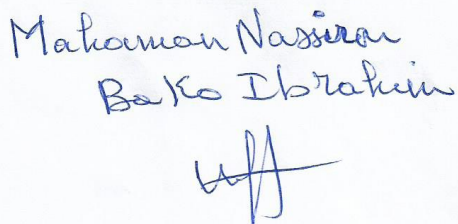 Mahaman Nassirou
Bako Ibrahim